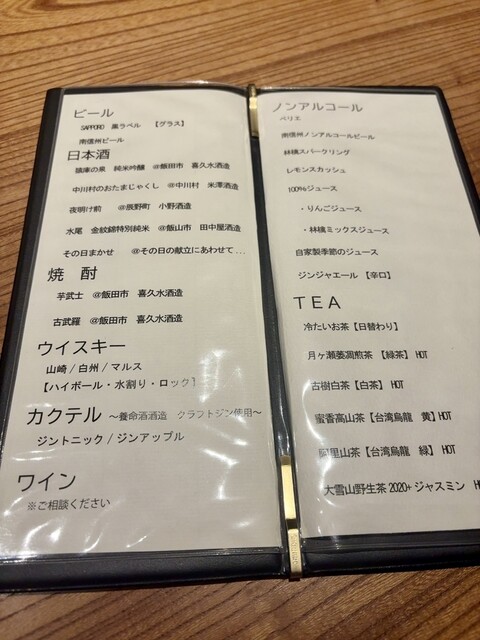 ビール
SAPPORO 黒ラベル 【グラス】
南信州ビール
日本酒
猿庫の泉 純米吟醸 @飯田市 喜久水酒造
中川村のおたまじゃくし @中川村 米澤酒造
夜明け前 @辰野町 小野酒造
水尾 金紋錦特別純米 @飯山市 田中屋酒造
その日まかせ @その日の献立にあわせて…
焼 酎
芋武士 @飯田市 喜久水酒造
古武羅 @飯田市 喜久水酒造
ウイスキー
山崎/白州/マルス
【ハイボール・水割り・ロック】
カクテル ～養命酒酒造 クラフトジン使用～
ジントニック/ジンアップル
ワイン
※ご相談ください
ノンアルコール
ペリエ
南信州ノンアルコールビール
林檎スパークリング
レモンスカッシュ
100%ジュース
・りんごジュース
・林檎ミックスジュース
自家製季節のジュース
ジンジャエール 【辛口】
TEA
冷たいお茶【日替わり】
月ヶ瀬萎凋煎茶 【緑茶】 HOT
古樹白茶【白茶】 HOT
蜜香高山茶【台湾烏龍 黄】HOT
阿里山茶【台湾烏龍 緑】 HOT
大雪山野生茶 2020+ ジャスミン